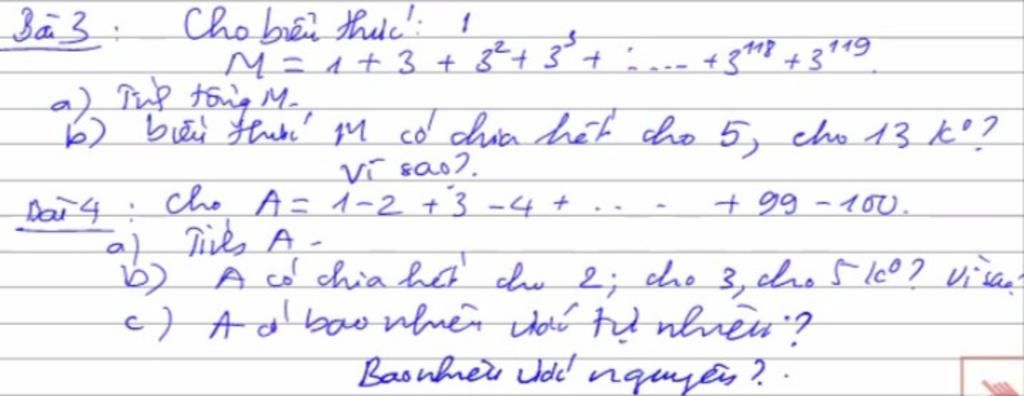 Bài 3 : Cho biểu thức :
M = 1 + 3 + 3² + 3³ + ..... + 3¹¹⁸ + 3¹¹⁹.
a) Tính tổng M.
b) biểu thức M có chia hết cho 5, cho 13 kº?
Vì sao?.
Bài 4 : Cho A = 1-2 + 3 -4 + .. . + 99 - 100.
a) Tính A -
b) A có chia hết cho 2; cho 3, cho 5 kº? Vì sao?
c) A có bao nhiêu ước tự nhiên ?
Bao nhiêu ước nguyên ? .